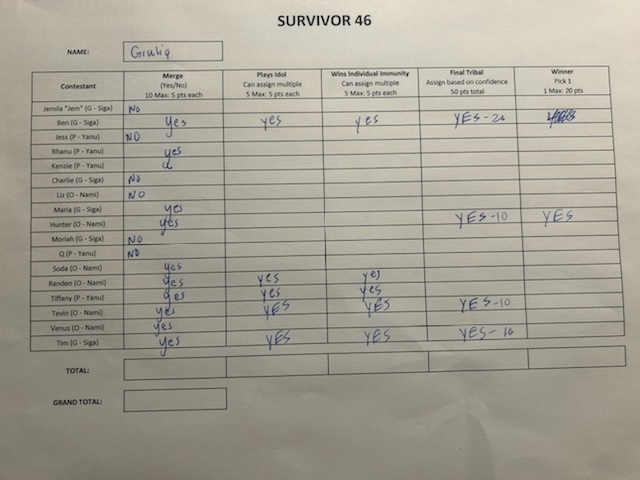 SURVIVOR 46
NAME: Giulia
Contestant Merge (Yes/No) 10 Max: 5 pts each Plays Idol Can assign multiple 5 Max: 5 pts each Wins Individual Immunity Can assign multiple 5 Max: 5 pts each Final Tribal Assign based on confidence 50 pts total Winner Pick 1 1 Max: 20 pts
Jemila "Jem" (G - Siga) NO
Ben (G - Siga) yes yes yes YES-20
Jess (P - Yanu) NO
Bhanu (P - Yanu) yes
Kenzie (P - Yanu)
Charlie (G - Siga) NO
Liz (O - Nami) NO
Maria (G - Siga) yes
Hunter (O - Nami) yes YES-10 YES
Moriah (G - Siga) NO
Q (P - Yanu) NO
Soda (O - Nami) yes
Randen (O - Nami) yes yes yes
Tiffany (P - Yanu) yes yes yes
Tevin (O - Nami) yes YES YES YES-10
Venus (O - Nami) yes
Tim (G - Siga) yes YES YES YES-10
TOTAL:
GRAND TOTAL: